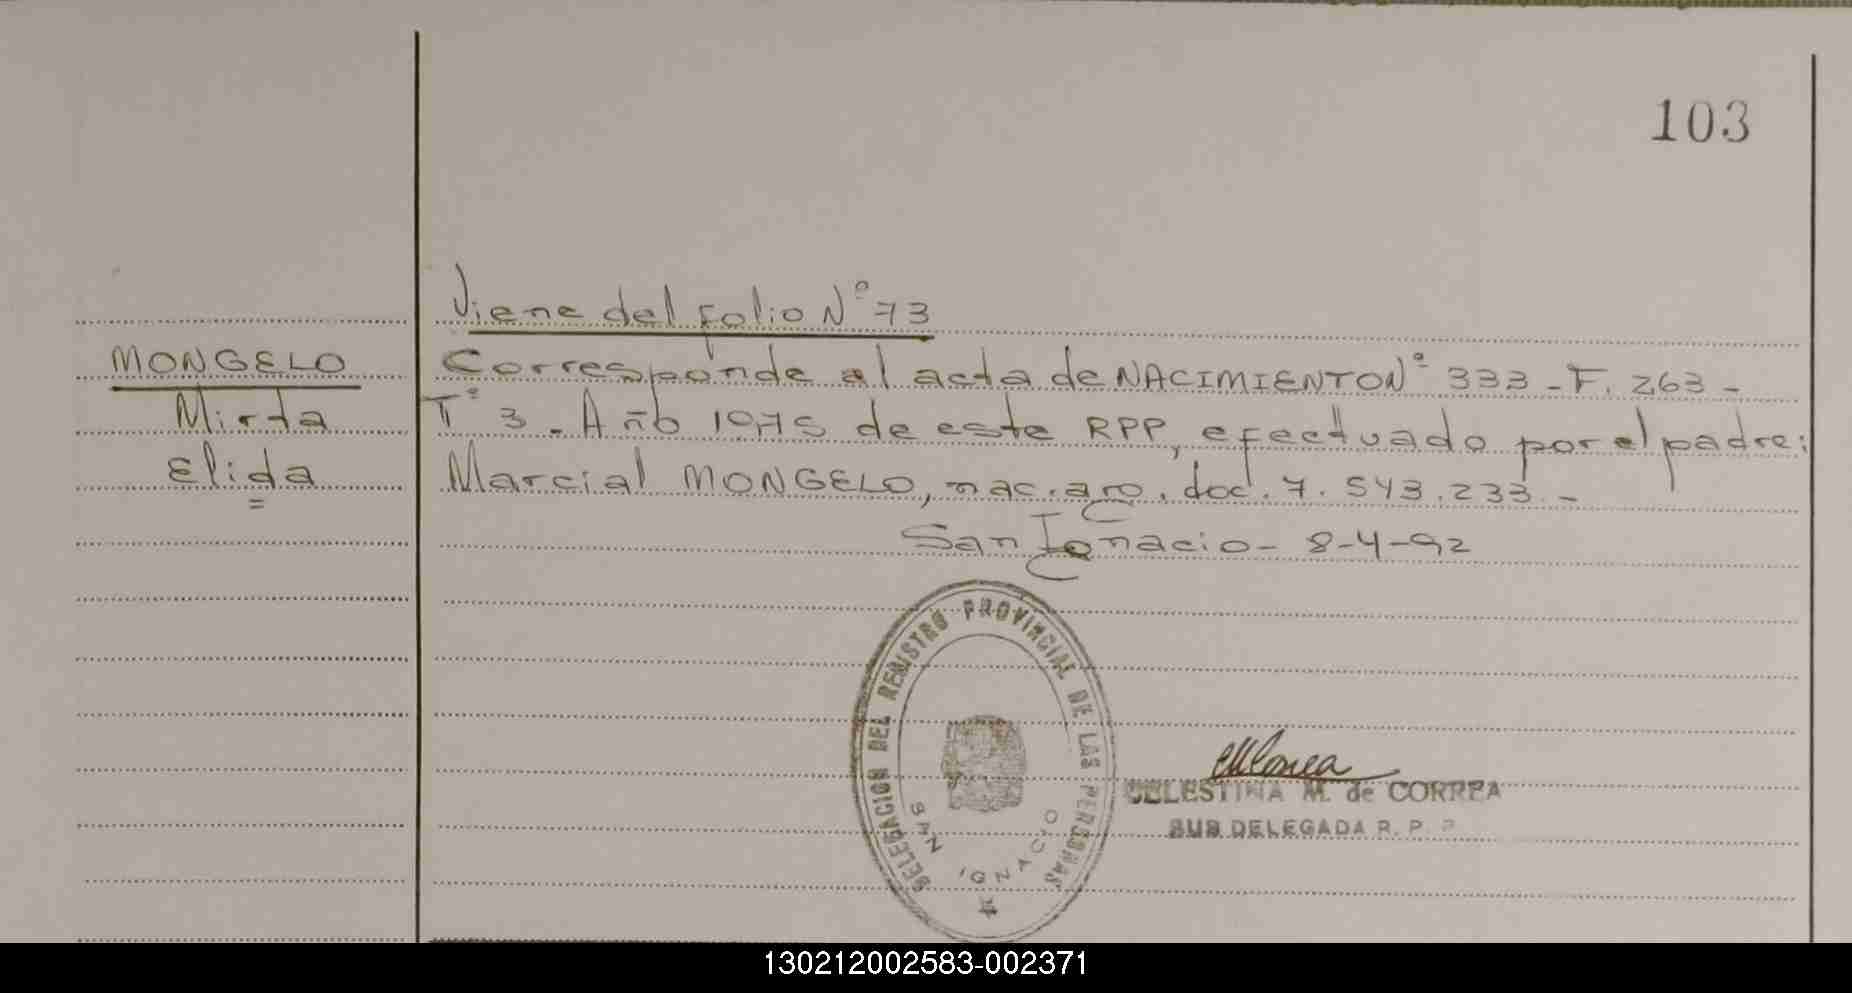 103
Viene del folio Nº 73
MONGELO
Mirta
Elida
Corresponde al acta de NACIMIENTO Nº 333 - F. 263 -
Tº 3 - Año 1975 de este RPP, efectuado por el padre:
Marcial MONGELO, nac. arg. doc. 7.543.233 -
San Ignacio - 8-4-92
DELEGACION DEL REGISTRO PROVINCIAL DE LAS PERSONAS
SAN IGNACIO
CELESTINA M. de CORREA
SUB DELEGADA R. P. P.
130212002583-002371